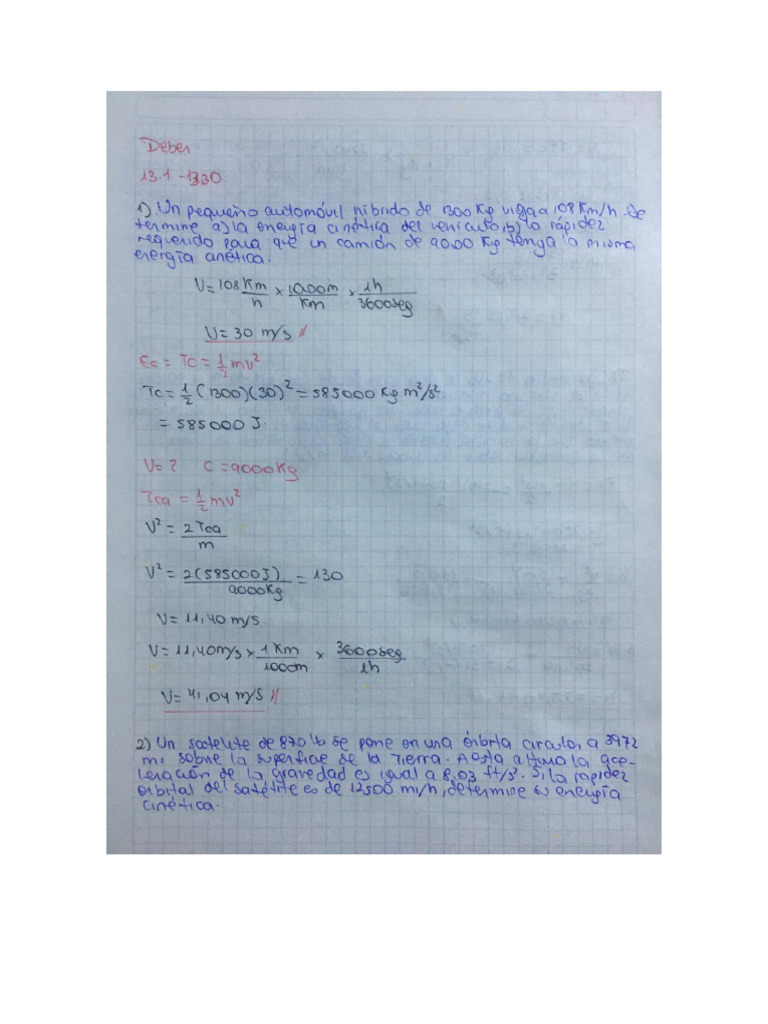 Deber.
13.1-1330
1) Un pequeño automóvil híbrido de 1300 Kg viaja a 108 Km/h. De
termine a) la energía cinética del vehículo, b) la rápidez
requerido para que un camión de 9000 Kg tenga la misma
energía cinética.
V = 108 Km/h × 1000m/Km × 1h/3600seg
V = 30 m/s //
Ec = Tc = 1/2 mv²
Tc = 1/2 (1300)(30)² = 585000 Kg m²/s²
= 585000 J.
V = ? C = 9000Kg
Tca = 1/2 mv²
V² = 2Tca/m
V² = 2(585000J)/9000Kg = 130
V = 11,40 m/s
V = 11,40m/s × 1 Km/1000m × 3600seg/1h
V = 41,04 m/s //
2) Un satelite de 870 lb se pone en una órbita circular a 3972
mi sobre la superficie de la Tierra. A esta altura la ace-
leración de la gravedad es igual a 8,03 ft/s². Si la rapidez
orbital del satélite es de 12500 mi/h, determine su energía
cinética.